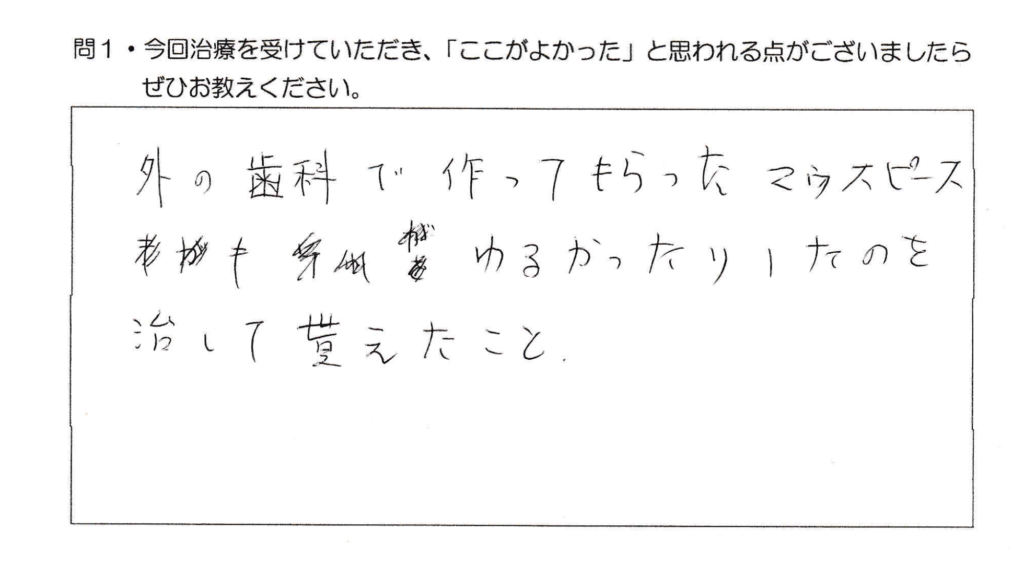 問1・今回治療を受けていただき、「ここがよかった」と思われる点がございましたら
ぜひお教えください。
外の歯科で作ってもらったマウスピース
も ゆるかったりしたのを
治して貰えたこと.